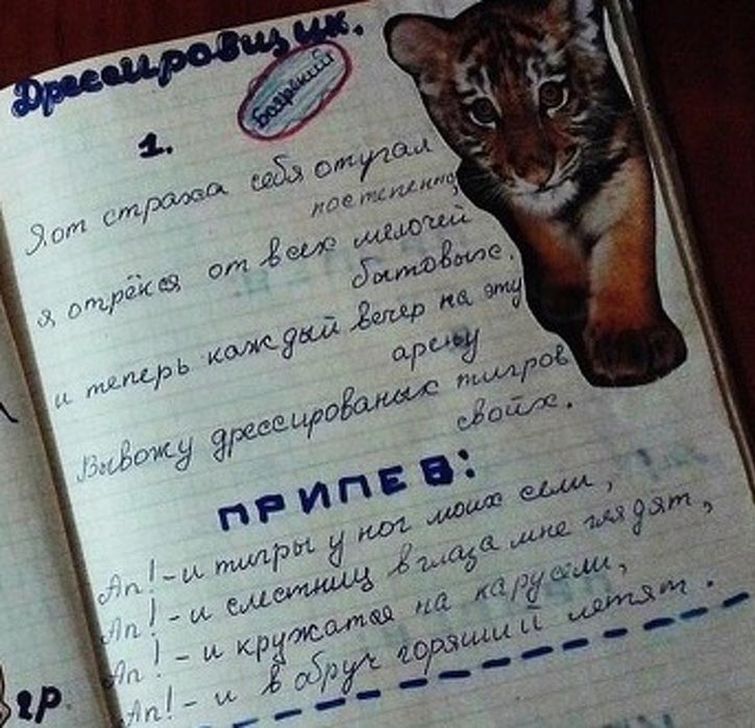 Дрессировщик.
Боярский
1.
Я от страха себя отугал
постепенно
я отрёкся от всех мелочей
бытовых.
и теперь каждый вечер на эту
арену
Вывожу дрессированых тигров
свойх.
ПРИПЕВ:
Ап! - и тигры у ног моих сели,
Ап! - и слестниц в глаза мне глядят,
Ап! - и кружатся на карусели,
Ап! - и в обруч горящий летят.
гр.